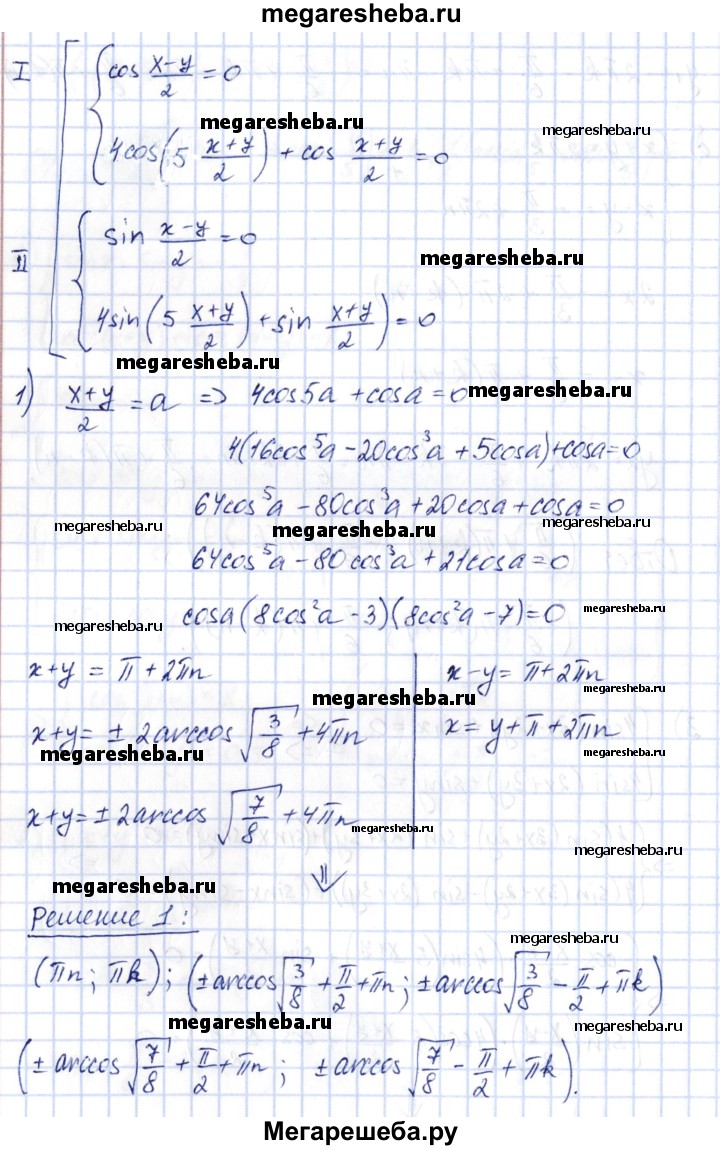 megaresheba.ru
I { cos (x-y)/2 = 0
megaresheba.ru megaresheba.ru
4cos(5 (x+y)/2) + cos (x+y)/2 = 0
II { sin (x-y)/2 = 0
megaresheba.ru
4sin(5 (x+y)/2) + sin (x+y)/2) = 0
megaresheba.ru
1) (x+y)/2 = a => 4cos5a + cosa = 0 megaresheba.ru
4(16cos⁵a - 20cos³a + 5cosa) + cosa = 0
64cos⁵a - 80cos³a + 20cosa + cosa = 0
megaresheba.ru megaresheba.ru megaresheba.ru
64cos⁵a - 80cos³a + 21cosa = 0
cosa(8cos²a - 3)(8cos²a - 7) = 0 megaresheba.ru
megaresheba.ru
x+y = π + 2πn x-y = π + 2πn
megaresheba.ru megaresheba.ru
x+y = ± 2arccos √(3/8) + 4πn x = y + π + 2πn
megaresheba.ru megaresheba.ru
x+y = ± 2arccos √(7/8) + 4πn megaresheba.ru
⇓
megaresheba.ru
Решение 1:
megaresheba.ru
(πn; πk); (± arccos √(3/8) + π/2 + πn; ± arccos √(3/8) - π/2 + πk)
megaresheba.ru megaresheba.ru
(± arccos √(7/8) + π/2 + πn; ± arccos √(7/8) - π/2 + πk).
Мегарешеба.ру